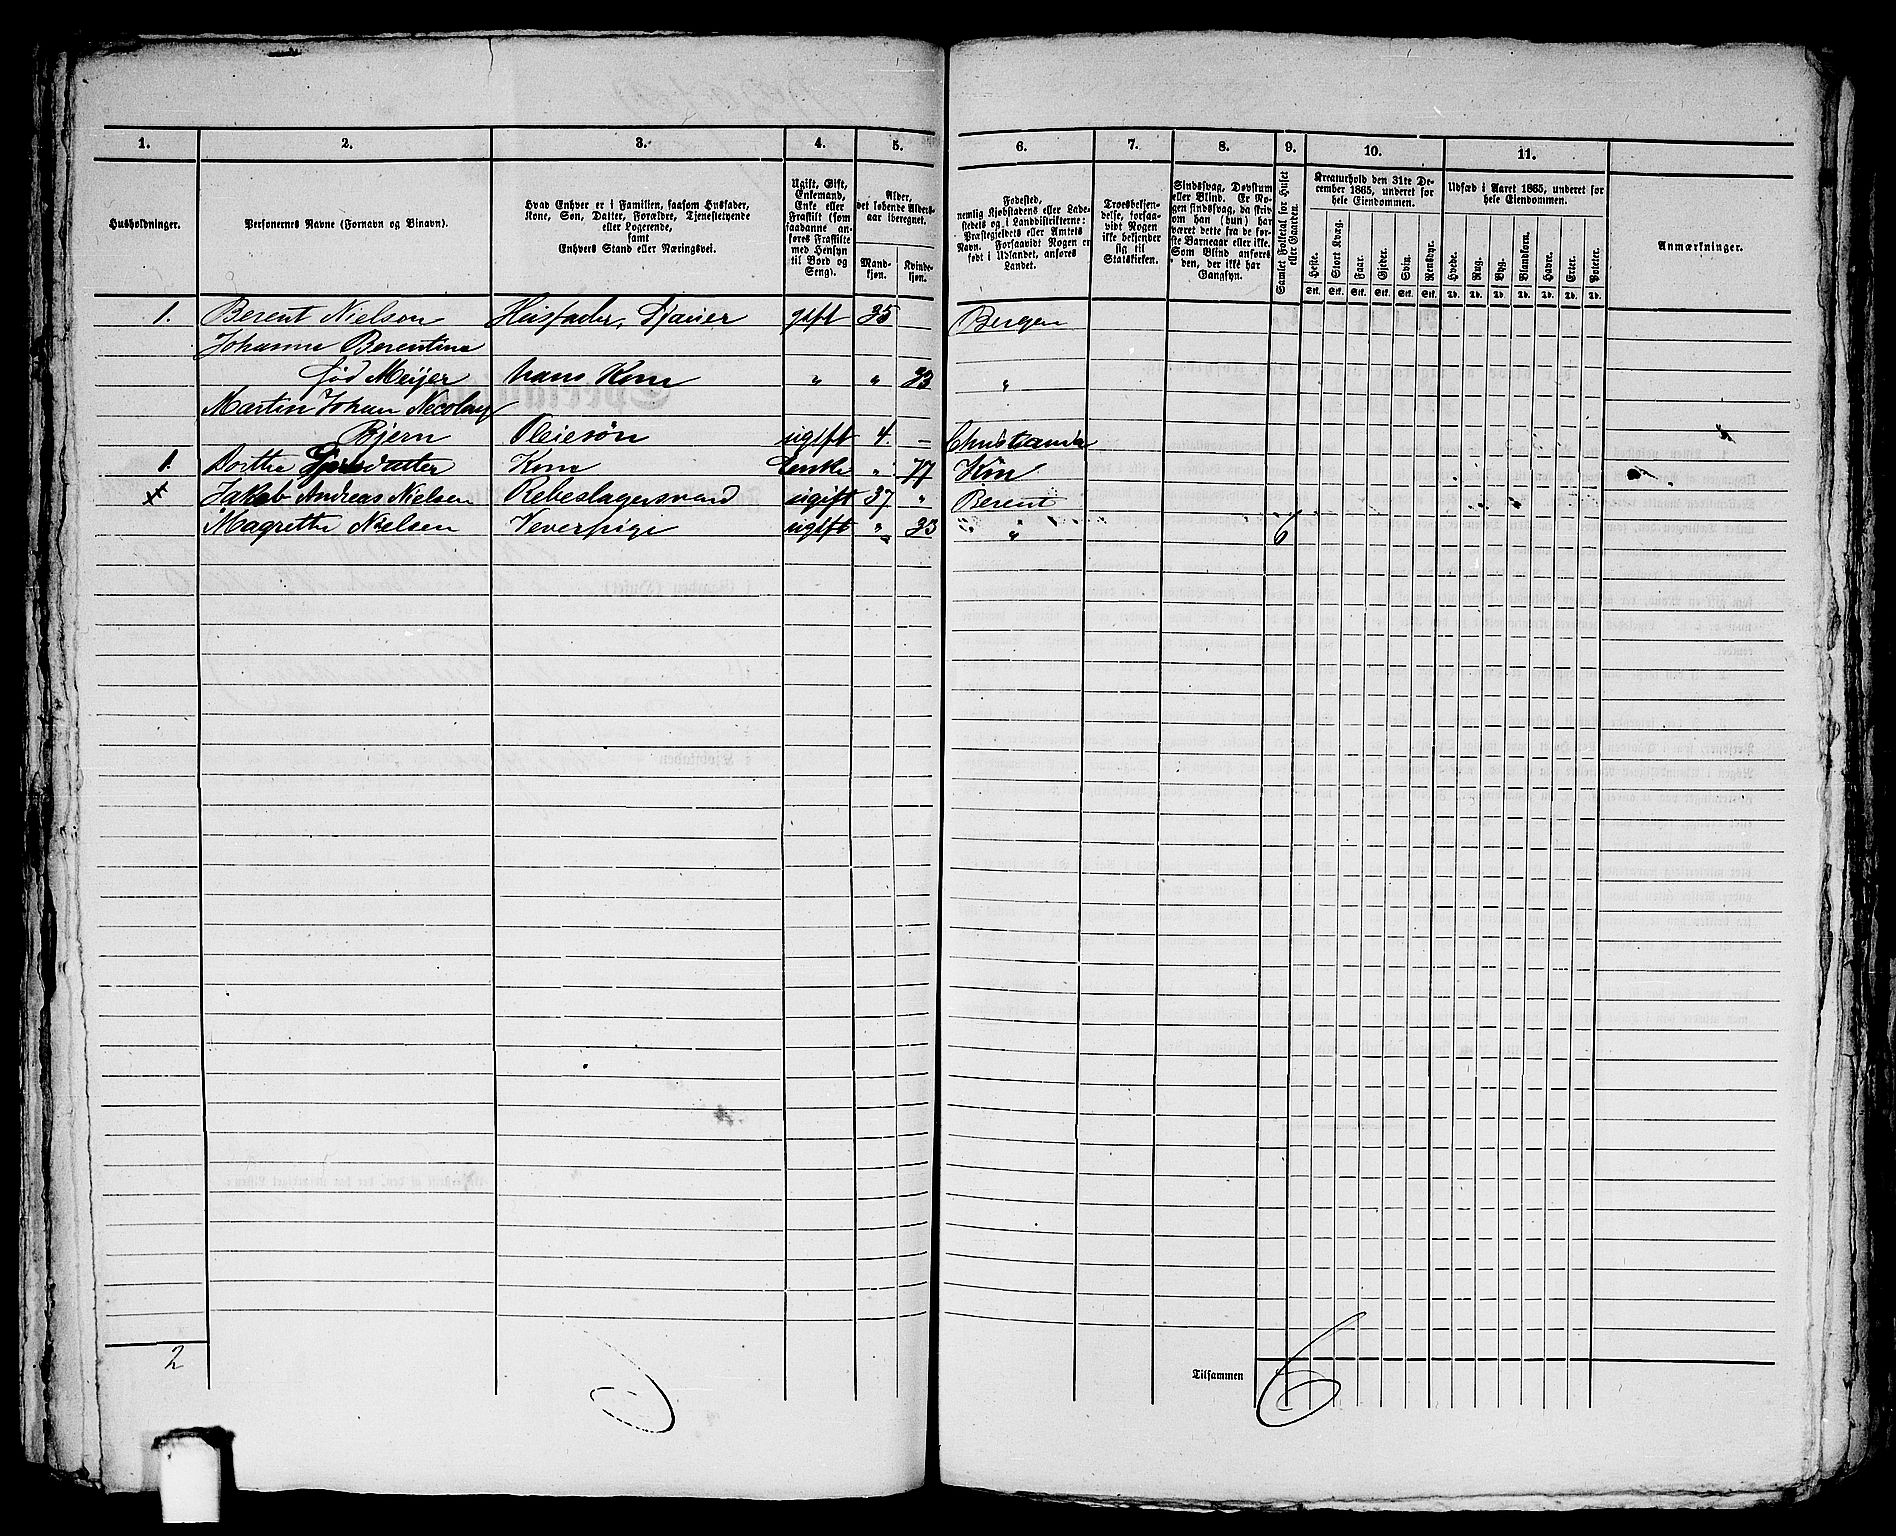 1. 2. 3. 4. 5. 6. 7. 8. 9. 10. 11.
Husholdninger.
Personernes Navne (Fornavn og Binavn).
Hvad Enhver er i Familien, saasom Husfader,
Kone, Søn, Datter, Forældre, Tjenestetyende
eller Logerende,
samt
Enhvers Stand eller Næringsvei.
Ugift, Gift,
Enkemand,
Enke eller
Fraskilt (som
saadanne an-
føres Fraskilte
med Hensyn
til Bord og
Seng).
Alder,
det løbende Alders-
aar iberegnet.
Mand-
kjøn.
Kvinde-
kjøn.
Fødested,
nemlig Kjøbstadens eller Lade-
stedets og i Landdistrikterne:
Præstegjeldets eller Amtets
Navn. Forsaavidt Nogen er
født i Udlandet, anføres
Landet.
Troesbekjen-
delse, forsaa-
vidt Nogen
ikke bekjender
sig til
Statskirken.
Sindssvag, Døvstum
eller Blind. Er No-
gen sindssvag, da skriv
om han (hun) har
været dette fra de før-
ste Barneaar eller ikke.
Som Blind anføres
den, der ikke har
Gangsyn.
Samlet Folketal for Huset
eller Gaarden.
Kreaturhold den 31te De-
cember 1865, underet for
hele Eiendommen.
Heste. Stort Kvæg. Faar. Gjeder. Svin. Rensdyr.
Stk. Stk. Stk. Stk. Stk. Stk.
Udsæd i Aaret 1865, underet for
hele Eiendommen.
Hvede. Rug. Byg. Blandkorn. Havre. Erter. Poteter.
Td. Td. Td. Td. Td. Td. Td.
Anmærkninger.
1. Berent Nielson Husfader, gift 35 Bergen
Johanne Berentine
fød Meijer hans Kone " " 33 "
Martin Johan Necolay
Bjern Pleiesøn ugift 4. – Christiania
1. Dorthe Kone Enke " 77
Jakob Andreas Nielsen Rebeslagersvend ugift 37 " Berent
Magrethe Nielsen Veverpige ugift " 33 " " 6
2
Tilsammen 6